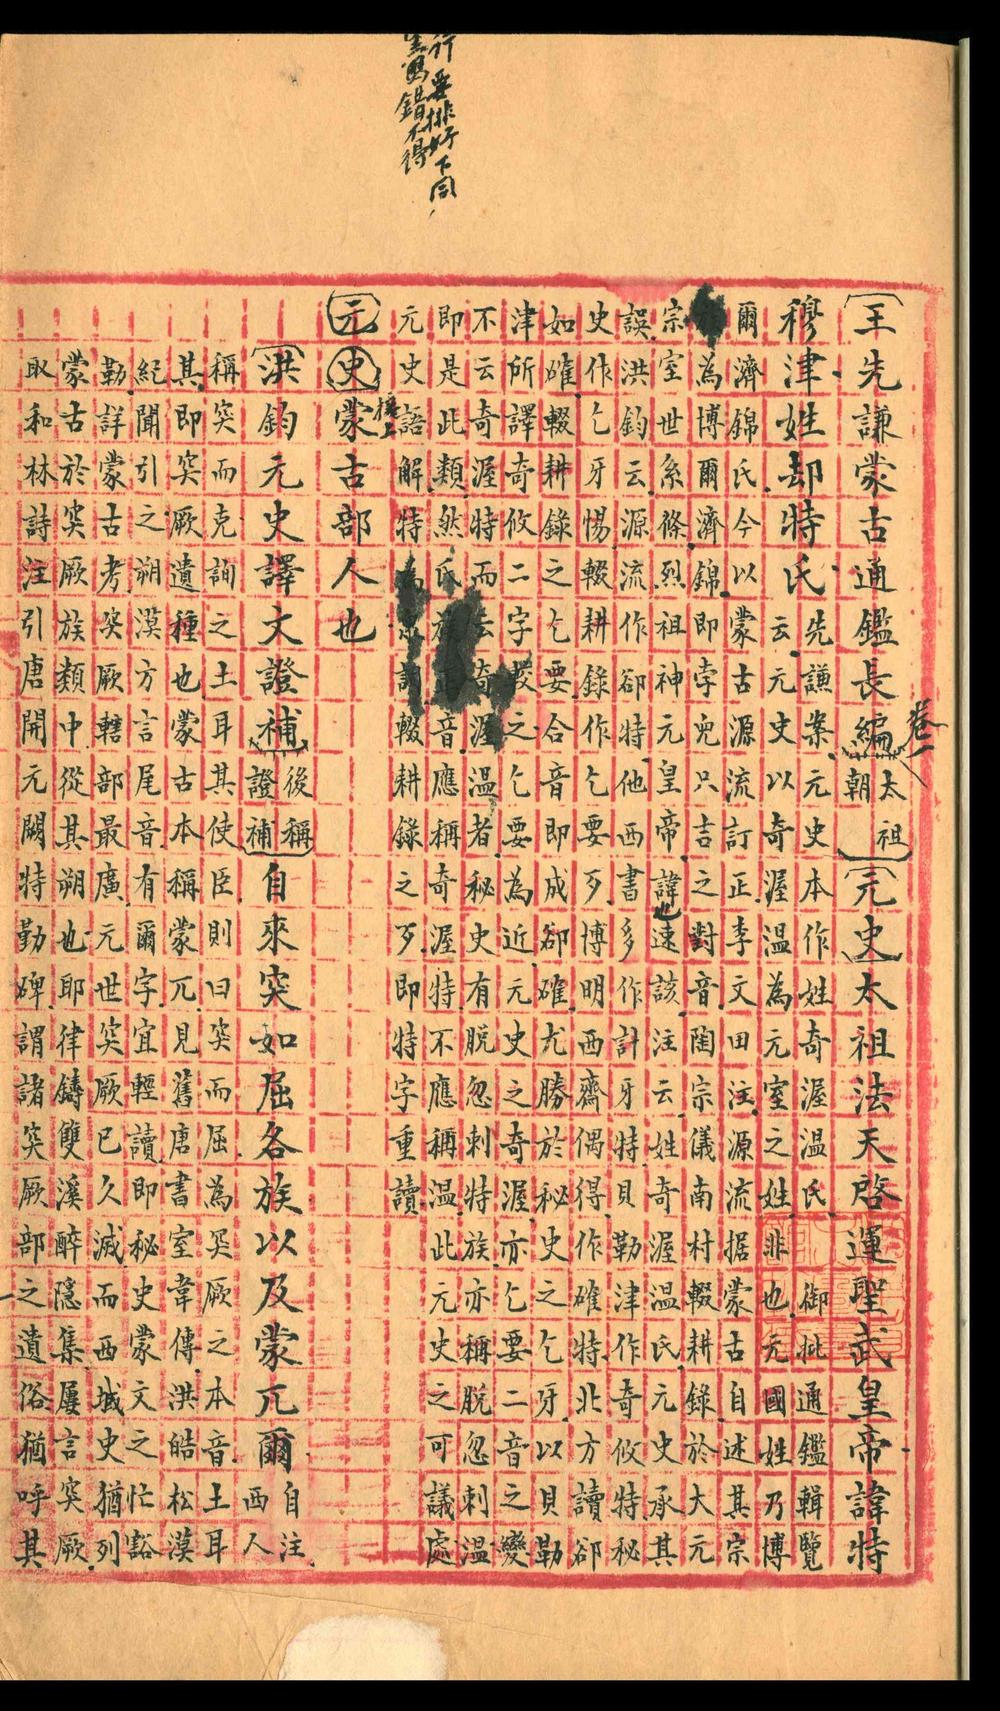 王先謙蒙古通鑑長編太祖朝元史太祖法天啓運聖武皇帝諱特
穆津姓却特氏
先謙案元史本作姓奇渥温氏御批通鑑輯覽
云元史以奇渥温為元室之姓非也元國姓乃博
爾濟錦氏今以蒙古源流訂正李文田注源流據蒙古自述其宗
為博爾濟錦即孛兒只吉之對音陶宗儀南村輟耕錄於大元
宗室世系條烈祖神元皇帝諱也速該注云姓奇渥温氏元史承其
誤洪鈞云源流作郤特他西書多作計牙特貝勒津作奇攸特秘
史作乞牙惕輟耕錄作乞要歹博明西齋偶得作確特北方讀郤
如確輟耕錄之乞要合音即成郤確尤勝於秘史之乞牙以貝勒
津所譯奇攸二字較之乞要為近元史之奇渥亦乞要二音之變
不云奇渥特而云奇渥温者秘史有脱忽刺特族亦稱脱忽刺温
即是此類然氏音應稱奇渥特不應稱温此元史之可議處
元史語解特輟耕錄之歹即特字重讀
元史蒙古部人也
接上
洪鈞元史譯文證補後稱證補自來突如屈各族以及蒙兀爾自注西人
稱突而克詢之土耳其使臣則曰突而屈為突厥之本音土耳
其即突厥遺種也蒙古本稱蒙兀見舊唐書室韋傳洪皓松漠
紀聞引之朔漠方言尾音有爾字宜輕讀即秘史蒙文之忙豁
勒詳蒙古考突厥轄部最廣元世突厥已久滅而西域史猶列
蒙古於突厥族類中從其朔也耶律鑄雙溪醉隱集屢言突厥
取和林詩注引唐開元闕特勤碑謂諸突厥部之遺俗猶呼其
卷一
行要排好下同
寫錯不得